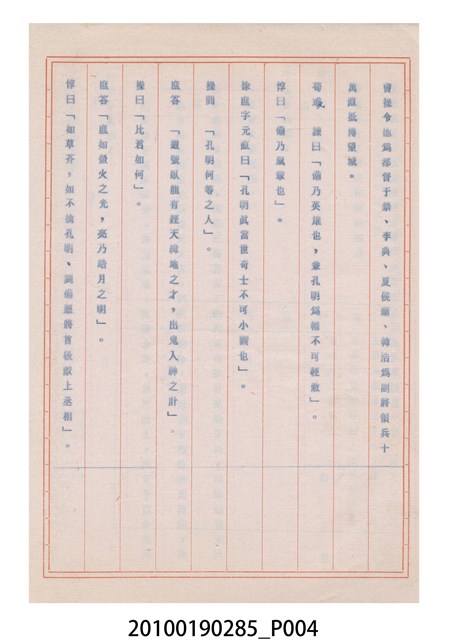 曹操令他為都督于禁、李典、夏侯蘭、韓浩為副將領兵十
萬直抵房望城。
荀彧 諫曰「備乃英雄也，兼孔明為輔不可輕敵」。
惇曰「備乃鼠輩也」。
徐庶字元直曰「孔明眞當世奇士不可小覷也」。
操問 「孔明何等之人」。
庶答 「道號臥龍有經天緯地之才，出鬼入神之計」。
操曰「比君如何」。
庶答「庶如螢火之光，亮乃皓月之明」。
惇曰「如草芥，如不擒孔明、劉備願將首級獻上丞相」。
20100190285_P004